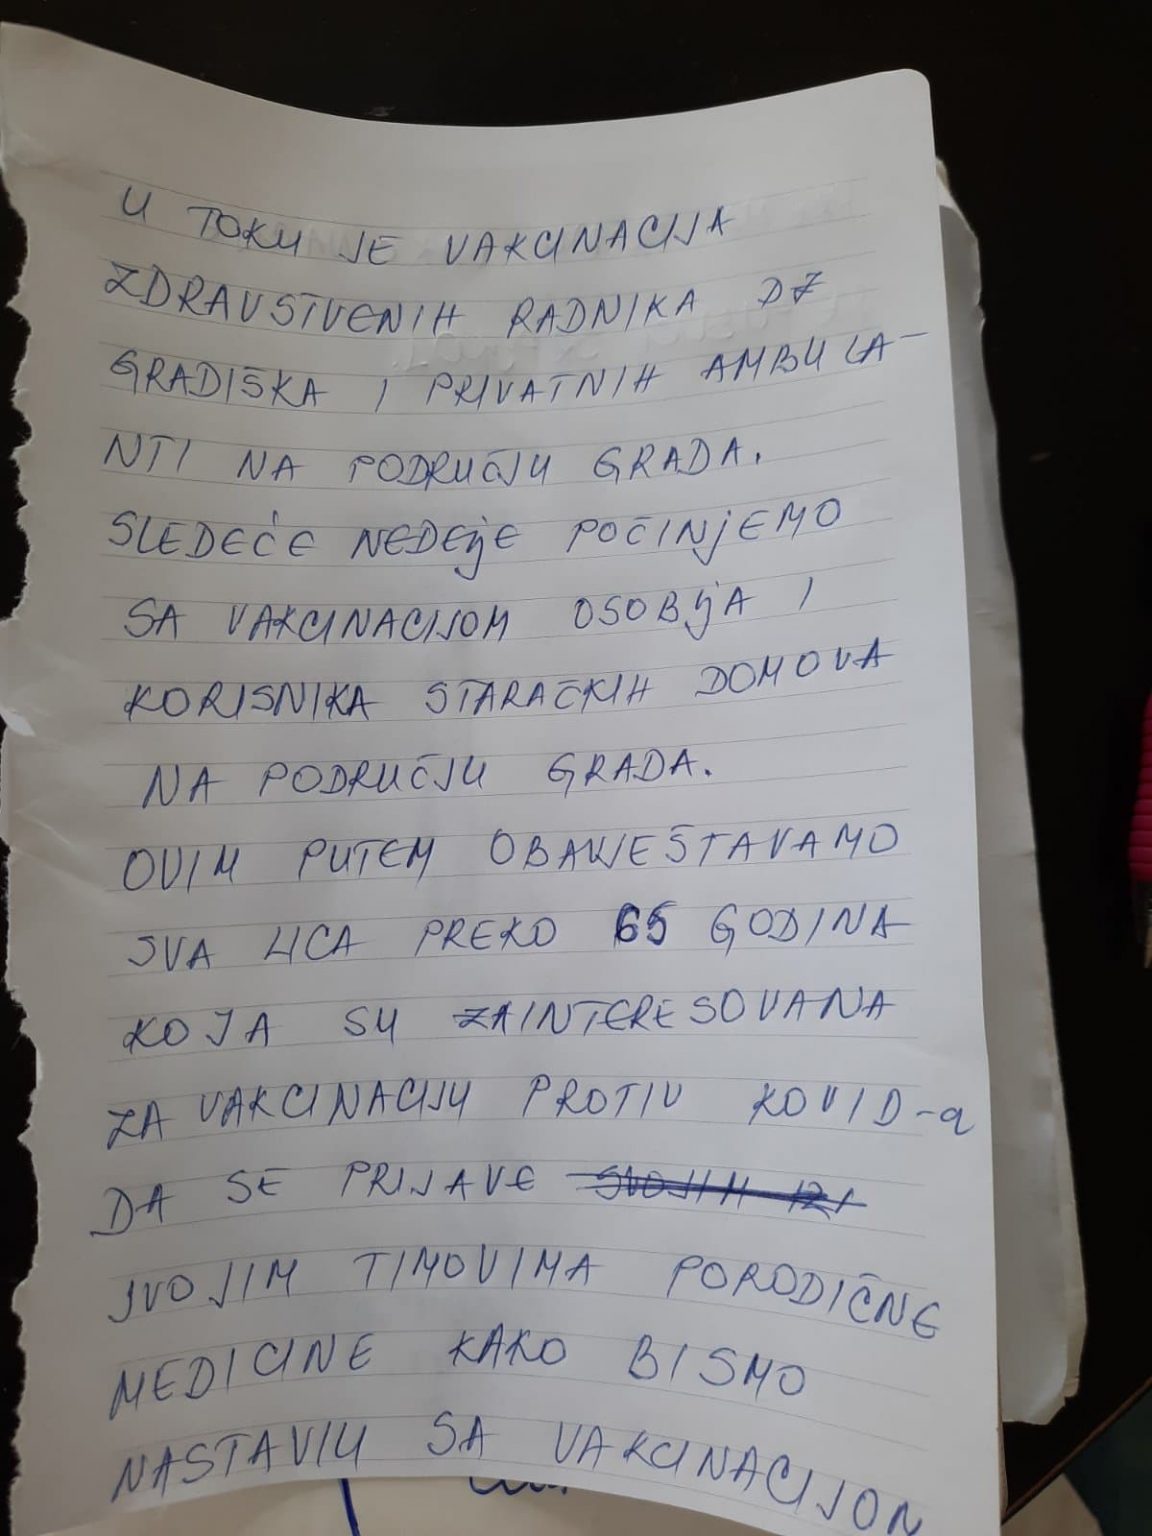 U TOKU JE VAKCINACIJA
ZDRAVSTVENIH RADNIKA DZ
GRADIŠKA I PRIVATNIH AMBULA-
NTI NA PODRUČJU GRADA.
SLEDEĆE NEDELJE POČINJEMO
SA VAKCINACIJOM OSOBLJA I
KORISNIKA STARAČKIH DOMOVA
NA PODRUČJU GRADA.
OVIM PUTEM OBAVJEŠTAVAMO
SVA LICA PREKO 65 GODINA
KOJA SU ZAINTERESOVANA
ZA VAKCINACIJU PROTIV KOVID-a
DA SE PRIJAVE
SVOJIM TIMOVIMA PORODIČNE
MEDICINE KAKO BISMO
NASTAVILI SA VAKCINACIJOM